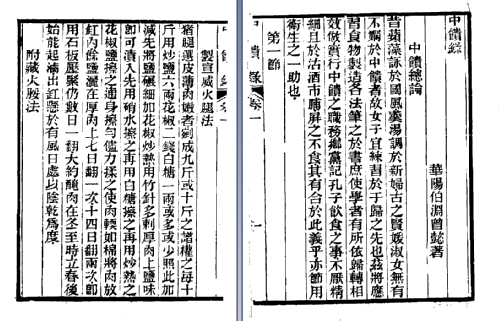 中饋錄
華陽伯淵曾懿著
中饋總論
昔蘋藻詠於國風羹湯調於新婦古之賢媛淑女無有
不嫻於中饋者故女子宜練習於于歸之先也茲將應
習食物製造各法筆之於書庶使學者有所依歸轉相
效倣實行中饋之職務鄉黨記孔子飲食之事不厭精
細且於沽酒市脯屏之不食其有合於此義乎亦節用
衛生之一助也
第一節
中饋錄 卷一
一
中饋錄 卷一
製宣威火腿法
豬腿選皮薄肉嫩者剁成九斤或十斤之譜權之每十
斤用炒鹽六兩花椒二錢白糖一兩或多或少照此加
減先將鹽碾細加花椒炒熱用竹針多刺厚肉上鹽味
即可漬入先用硝水擦之再用白糖擦之再用炒熱之
花椒鹽擦之通身擦勻儘力揉之使肉輭如棉將肉放
缸內餘鹽灑在厚肉上七日翻一次十四日翻兩次即
用石板壓緊仍數日一翻大約醃肉在冬至時立春後
始能起滷出缸懸於有風日處以陰乾為度
附藏火腿法